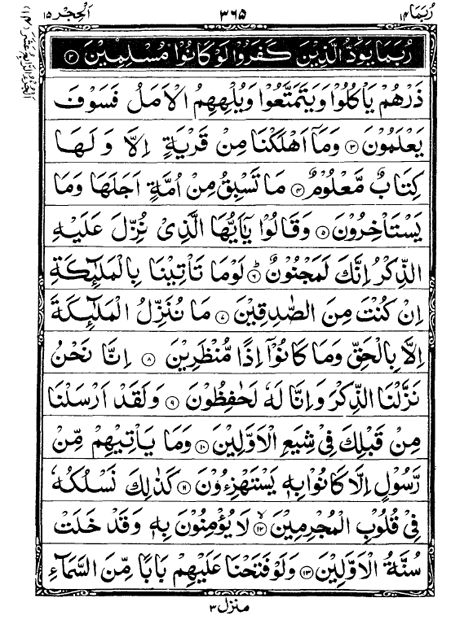 رُبَمَا ١٤ ٣٦٥ اَلْحِجْر ١٥
رُبَمَا يَوَدُّ الَّذِيْنَ كَفَرُوْا لَوْ كَانُوْا مُسْلِمِيْنَ ٢
ذَرْهُمْ يَاْكُلُوْا وَيَتَمَتَّعُوْا وَيُلْهِهِمُ الْاَمَلُ فَسَوْفَ
يَعْلَمُوْنَ ٣ وَمَاۤ اَهْلَكْنَا مِنْ قَرْيَةٍ اِلَّا وَ لَهَا
كِتَابٌ مَّعْلُوْمٌ ٤ مَا تَسْبِقُ مِنْ اُمَّةٍ اَجَلَهَا وَمَا
يَسْتَاْخِرُوْنَ ٥ وَقَالُوْا يٰۤاَيُّهَا الَّذِىْ نُزِّلَ عَلَيْهِ
الذِّكْرُ اِنَّكَ لَمَجْنُوْنٌ ٦ لَوْمَا تَاْتِيْنَا بِالْمَلٰٓئِكَةِ
اِنْ كُنْتَ مِنَ الصّٰدِقِيْنَ ٧ مَا نُنَزِّلُ الْمَلٰٓئِكَةَ
اِلَّا بِالْحَقِّ وَمَا كَانُوْۤا اِذًا مُّنْظَرِيْنَ ٨ اِنَّا نَحْنُ
نَزَّلْنَا الذِّكْرَ وَاِنَّا لَهٗ لَحٰفِظُوْنَ ٩ وَلَقَدْ اَرْسَلْنَا
مِنْ قَبْلِكَ فِىْ شِيَعِ الْاَوَّلِيْنَ ١٠ وَمَا يَاْتِيْهِمْ مِّنْ
رَّسُوْلٍ اِلَّا كَانُوْا بِهٖ يَسْتَهْزِءُوْنَ ١١ كَذٰلِكَ نَسْلُكُهٗ
فِىْ قُلُوْبِ الْمُجْرِمِيْنَ ١٢ لَا يُؤْمِنُوْنَ بِهٖ وَقَدْ خَلَتْ
سُنَّةُ الْاَوَّلِيْنَ ١٣ وَلَوْ فَتَحْنَا عَلَيْهِمْ بَابًا مِّنَ السَّمَآءِ
منزل ٣